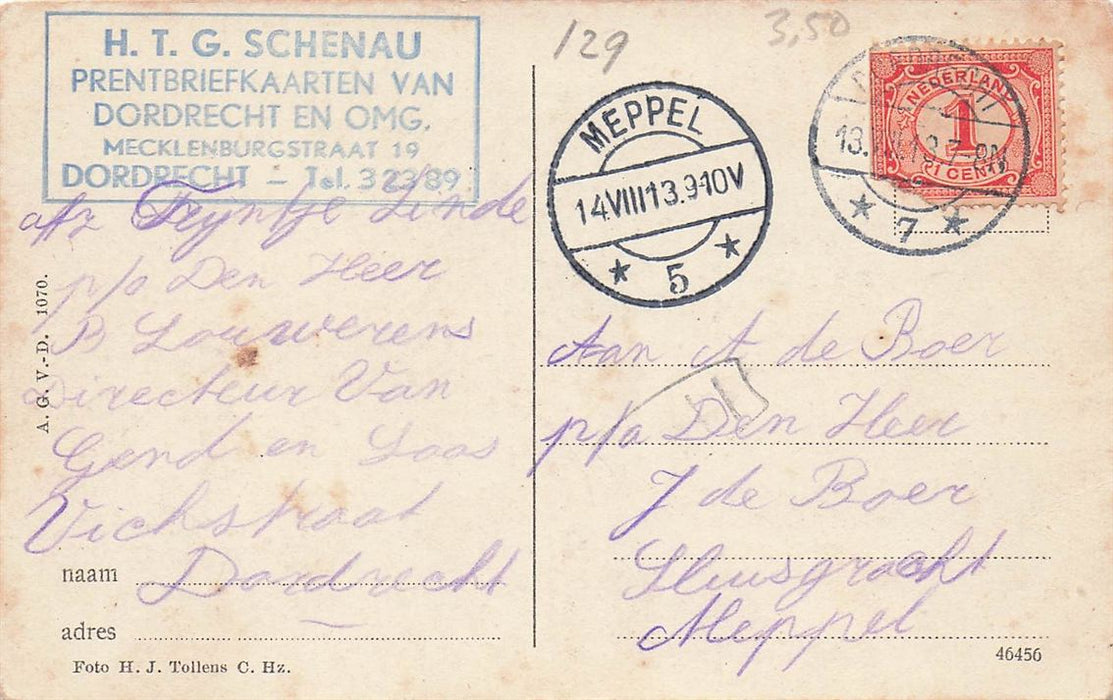 H. T. G. SCHENAU
PRENTBRIEFKAARTEN VAN
DORDRECHT EN OMG.
MECKLENBURGSTRAAT 19
DORDRECHT – Tel. 3 23 89
129
3,50
MEPPEL
14 VIII 13.9-10V
* 5 *
NEDERLAND
1
1 CENT
13.
* 7 *
afz Fijntje Linde
p/a Den Heer
B Louwerens
Directeur Van
Gend en Loos
Vichstraat
naam Dordrecht
adres
Foto H. J. Tollens C. Hz.
A. G. V.-D. 1070.
Aan A de Boer
p/a Den Heer
J de Boer
Sluisgracht
Meppel
46456